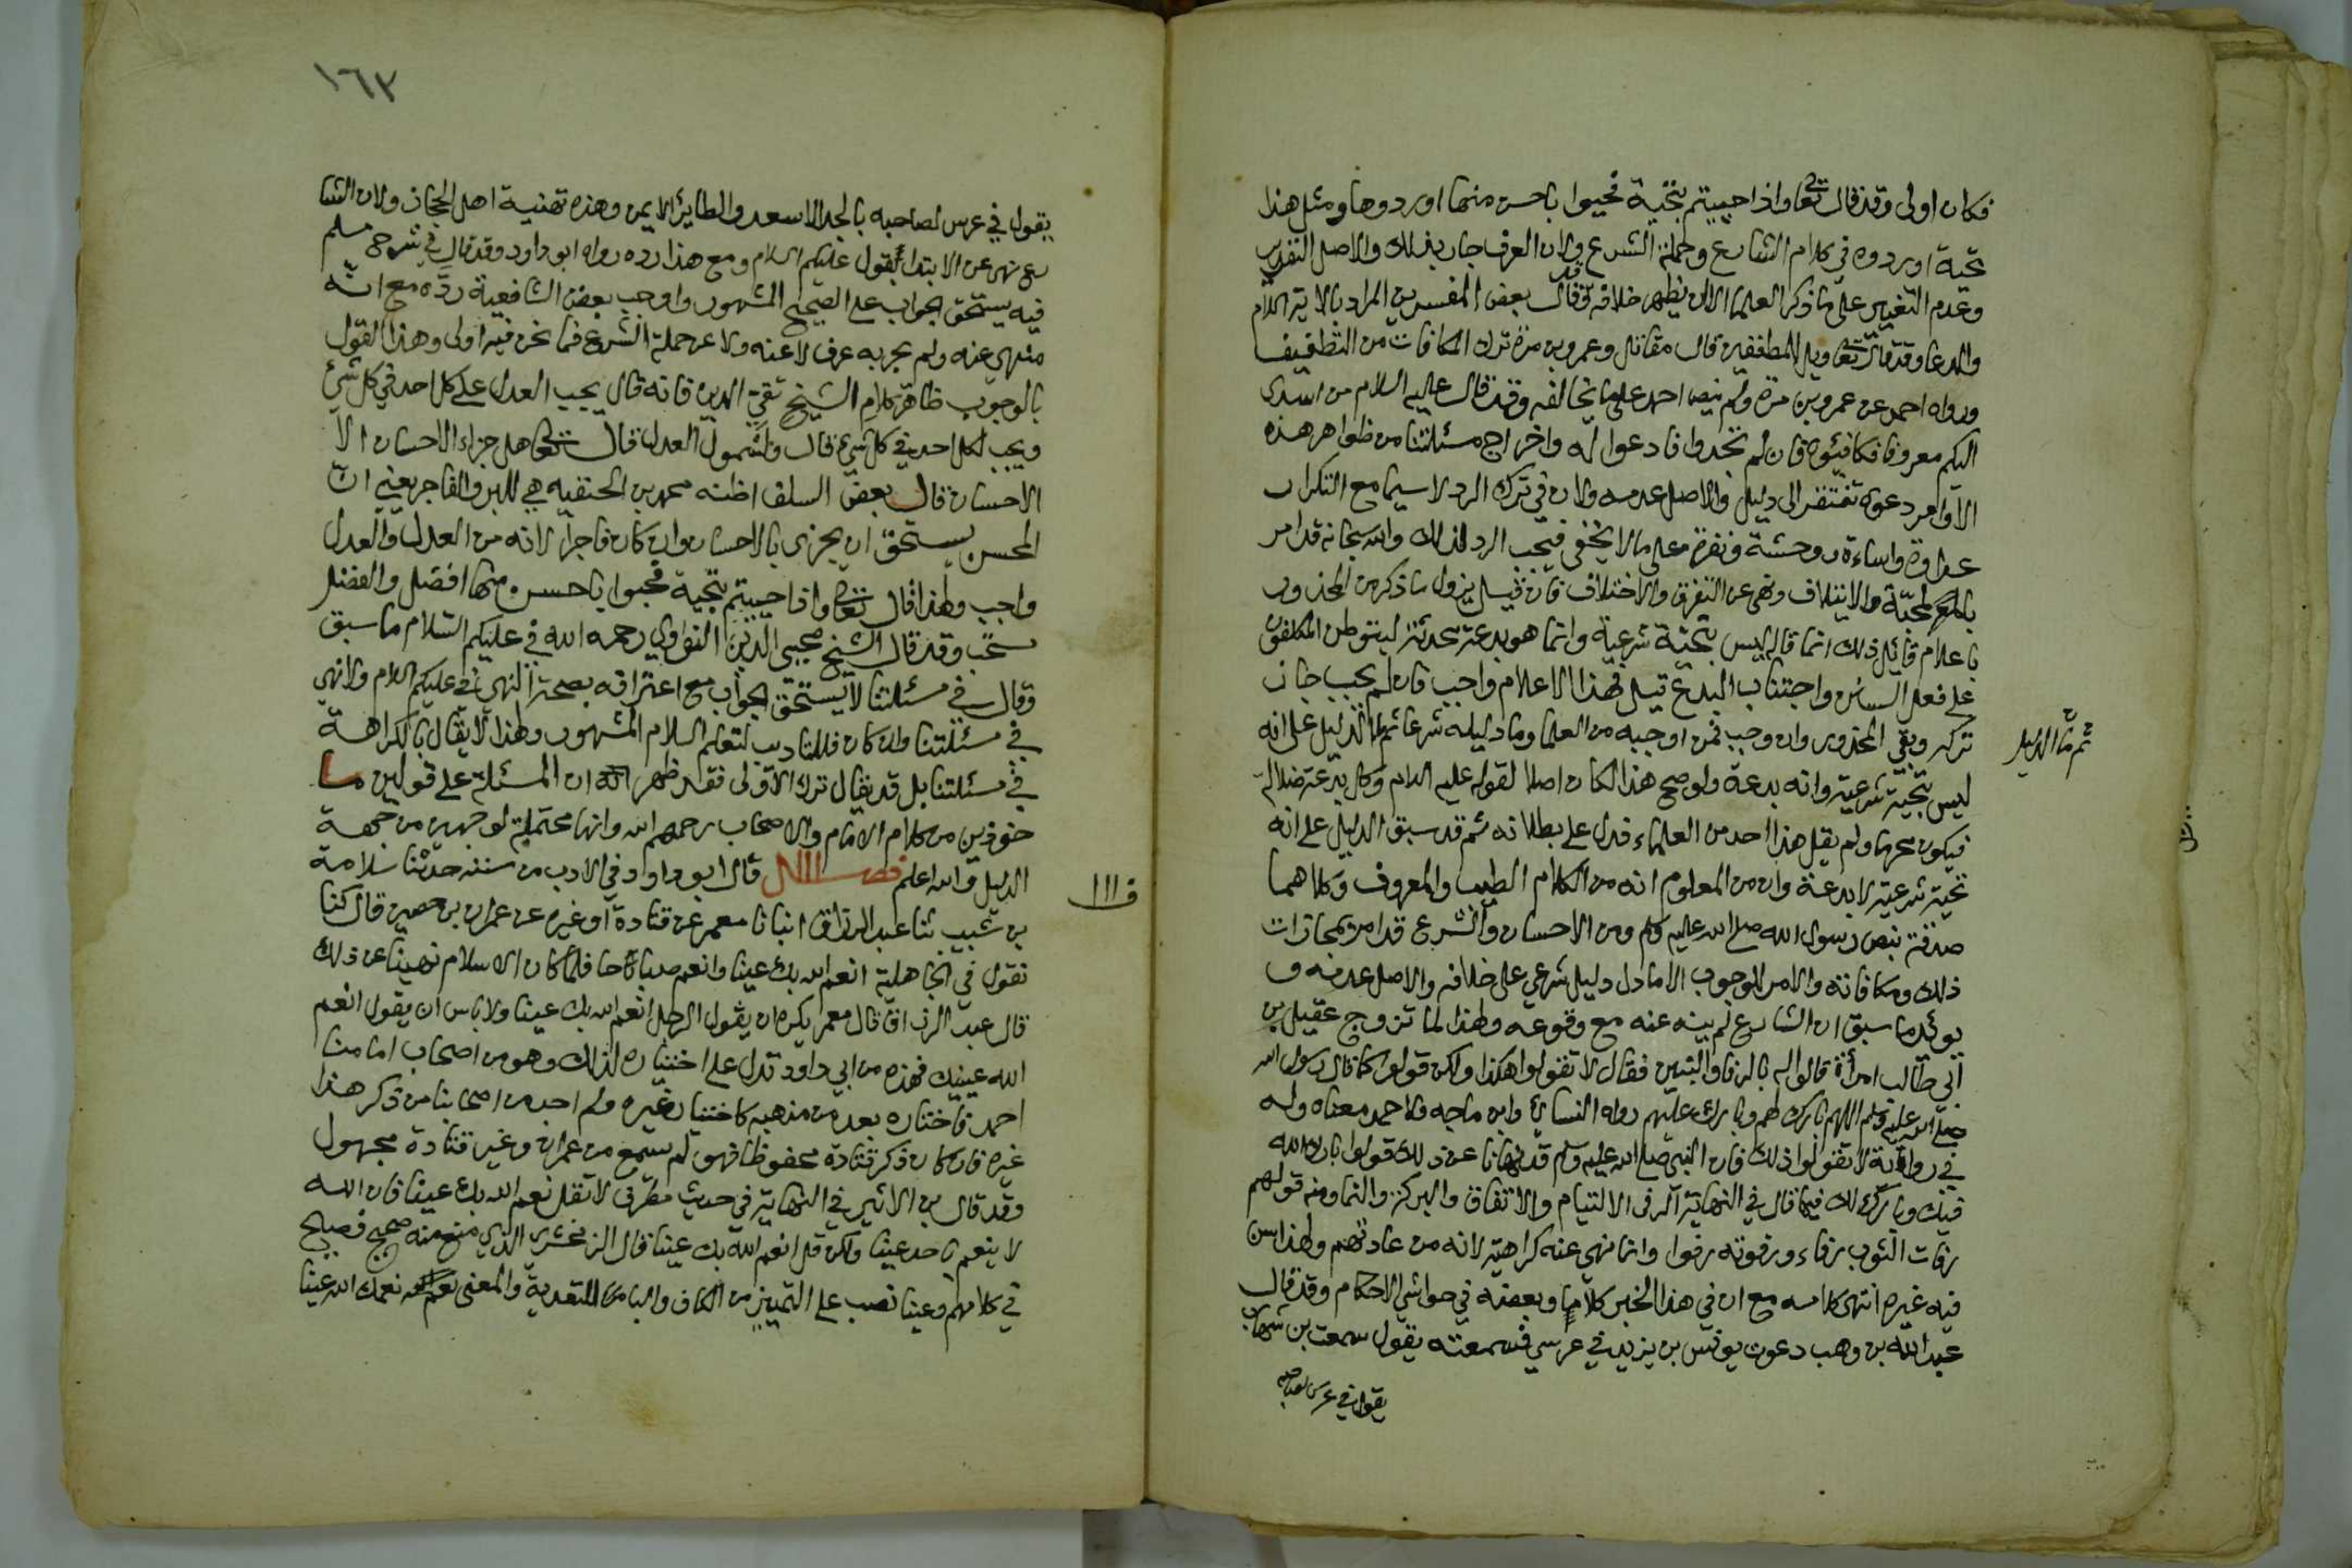 فكان اولى وقد قال تعا واذا حييتم بتحية فحيوا باحسن منها او ردوها ومثل هذا
تحية او ردوه في كلام الشارع وحملة الشرع ولان العرف جار بذلك والاصل التقرير
وعدم التغيير على ما ذكر العلما الا ان يظهر خلافه وقد قال بعض المفسرين المراد بالاية السلام
والدعا وقد قال تعا ويل للمطففين قال مقاتل وعمرو بن مرة ترك المكافات من التطفيف
ورواه احمد عن عمرو بن مرة ولم نيص احمد على ما يخالفه وقد قال عليه السلام من اسدى
اليكم معروفا فكافئوه فان لم تجدوا فادعوا له واخراج مسئلتنا من ظواهر هذه
الاوامر دعوى تفتقر الى دليل والاصل عدمه ولان في ترك الرد لا سيما مع التكرار
عداوة واساءة ووحشة ونفرة على ما لا يخفى فيجب الرد لذلك والله سبحانه قد امر
بالمحبة والايتلاف ونهى عن التفرق والاختلاف فان قيل يزول ما ذكر من المحذور
با علام قائل ذلك انما قاله ليس بتحية شرعية وانما هو بدعة محدثة ليتوطن المكلفون
على فعل السنن واجتناب البدع قيل فهذا الاعلام واجب فان لم يجب جاز
تركه وبقي المحذور وان وجب فمن اوجبه من العلما وما دليله شرعا ثم ما الدليل على انه
ثم ما الدليل
ليس بتحية شرعية وانه بدعة ولو صح هذا لكان اصلا لقوله عليه السلام وكل بدعة ضلالة
فيكون محرما ولم يقل هذا احد من العلماء فدل على بطلانه ثم قد سبق الدليل على انه
تحية شرعية لا بدعة وان من المعلوم انه من الكلام الطيب والمعروف وكلاهما
صدقة بنص رسول الله صلى الله عليه وسلم ومن الاحسان والشرع قد امر بمجازات
ذلك ومكافاته والامر للوجوب الا ما دل دليل شرعي على خلافه والاصل عدمه و
يوئد ما سبق ان الشارع لم ينه عنه مع وقوعه ولهذا لما تزوج عقيل بن
ابي طالب امراة قالوا له بالرفا والبنين فقال لا تقولوا هكذا ولكن قولوا كما قال رسول الله
صلى الله عليه وسلم اللهم بارك لهم وبارك عليهم رواه النسائي وابن ماجه ولاحمد معناه وله
في رواية لا تقولوا ذلك فان النبي صلى الله عليه وسلم قد نهانا عن ذلك قولوا بارك الله
فيك وبارك لك فيها قال في النهاية الرفى الالتيام والاتفاق والبركة والنما ومنه قولهم
رفات الثوب رفاء ورفوته رفوا وانما نهي عنه كراهية لانه من عادتهم ولهذا سن
فيه غيره انتهى كلامه مع ان في هذا الخبر كلاما وبعضه في حواشي الاحكام وقد قال
عبد الله بن وهب دعوت يونس بن يزيد في عرسي فسمعته يقول سمعت بن شهاب
يقول في عرس لصاحبه
١٦٣
يقول في عرس لصاحبه بالجد الاسعد والطاير الايمن وهذه تهنية اهل الحجاز ولان الشا
رع نهى عن الابتدا بقول عليكم السلام ومع هذا رده رواه ابو داود وقد قال في شرح مسلم
فيه يستحق الجواب على الصحيح المشهور واوجب بعض الشافعية رده مع انه
منهي عنه ولم يجر به عرف لا عنه ولا عن حملة الشرع فما نحن فيه اولى وهذا القول
بالوجوب ظاهر كلام الشيخ تقي الدين فانه قال يجب العدل على كل احد في كل شئ
ويجب لكل احد في كل شئ قال ولشمول العدل قال تعا هل جزاء الاحسان الا
الاحسان قال بعض السلف اظنه محمد بن الحنفيه هي للبر والفاجر يعني ان
المحسن يستحق ان يجزى بالاحسان وان كان فاجرا لانه من العدل والعدل
واجب ولهذا قال تعا واذا حييتم بتحية فحيوا باحسن منها افضل والفضل
مستحب وقد قال الشيخ محيي الدين النواوي رحمه الله في عليكم السلام ما سبق
وقال في مسئلتنا لا يستحق الجواب مع اعترافه بصحة النهي في عليكم السلام ولا نهي
في مسئلتنا وان كان فللتاديب لتعلم السلام المشهور ولهذا لا يقال بالكراهة
في مسئلتنا بل قد يقال ترك الاولى فقد ظهر ان المسئلة على قولين ما
خوذين من كلام الامام والاصحاب رحمهم الله وانها محتملة لوجهين من جهة
الدليل والله اعلم فصــل قال ابو داود في الادب من سننه حدثنا سلامة
فـــ
بن شبيب ثنا عبد الرزاق انبانا معمر عن قتادة او غيره عن عمران بن حصين قال كنا
نقول في الجاهلية انعم الله بك عينا وانعم صباحا فلما كان الاسلام نهينا عن ذلك
قال عبد الرزاق قال معمر يكره ان يقول الرجل انعم الله بك عينا ولا باس ان يقول انعم
الله عينيك فهذه من ابي داود تدل على اختياره لذلك وهو من اصحاب امامنا
احمد فاختاره بعد من مذهبه كاختيار غيره ولم اجد من اصحابنا من ذكر هذا
غيره فان كان ذكر قتادة محفوظا فهو لم يسمع من عمران وغير قتادة مجهول
وقد قال بن الاثير في النهاية في حديث مطرف لا تقل نعم الله بك عينا فان الله
لا ينعم باحد عينا ولكن قل انعم الله بك عينا قال الزمخشري الذي منع منه صحيح فصيح
في كلامهم وعينا نصب على التمييز من الكاف والبا للتعدية والمعنى نعمك الله عينا